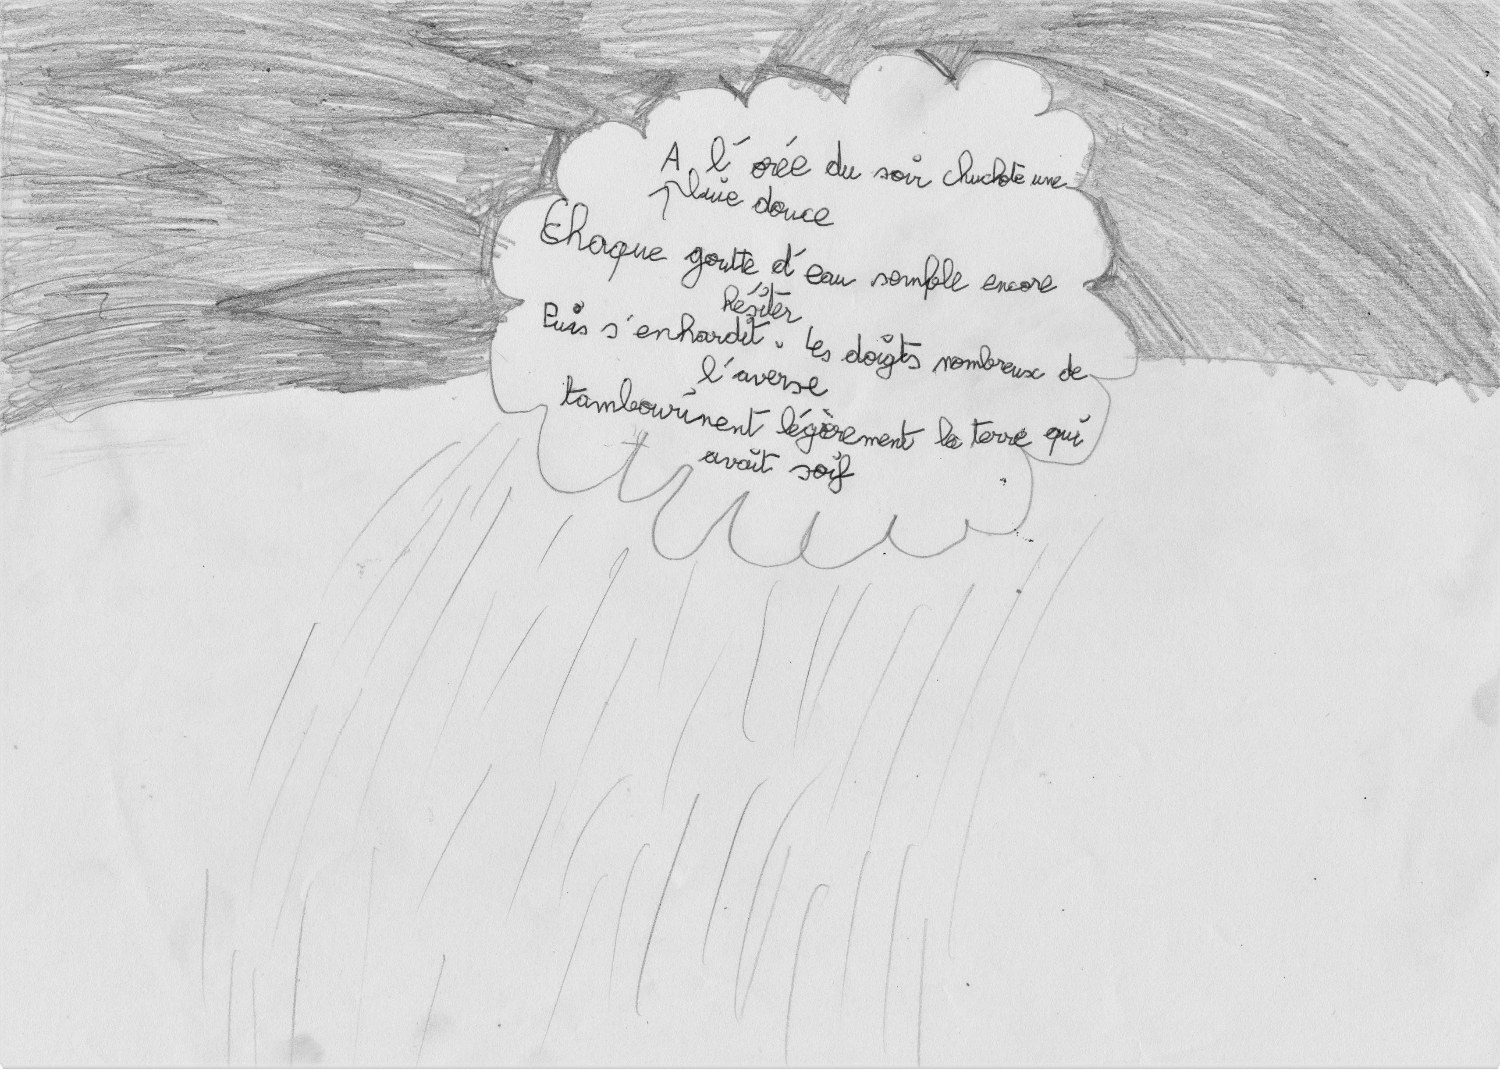 A l'orée du soir chuchote une
pluie douce
Chaque goutte d'eau semble encore
hésiter
Puis s'enhardit. Les doigts nombreux de
l'averse
tambourinent légèrement la terre qui
avait soif